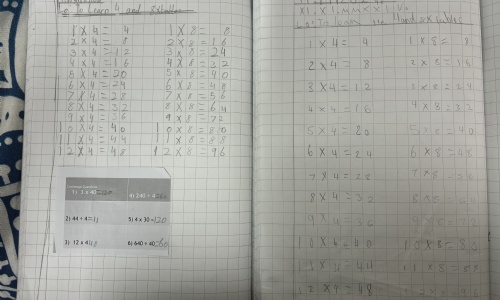 To Learn 4 and 8x tables
1 x 4 = 4 1 x 8 = 8
2 x 4 = 8 2 x 8 = 16
3 x 4 = 12 3 x 8 = 24
4 x 4 = 16 4 x 8 = 32
5 x 4 = 20 5 x 8 = 40
6 x 4 = 24 6 x 8 = 48
7 x 4 = 28 7 x 8 = 56
8 x 4 = 32 8 x 8 = 64
9 x 4 = 36 9 x 8 = 72
10 x 4 = 40 10 x 8 = 80
11 x 4 = 44 11 x 8 = 88
12 x 4 = 48 12 x 8 = 96
1) 3 x 40 4) 240 ÷ 4
2) 44 ÷ 4 = 11 5) 4 x 30 = 120
3) 12 x 4 6) 640 ÷ 40
1 x 4 = 4 1 x 8 = 8
2 x 4 = 8 2 x 8 = 16
3 x 4 = 12 x 8 = 24
4 x 4 = 16 4 x 8 = 32
5 x 4 = 20 = 40
6 x 4 = 24 6 x 8 = 48
7 x 4 = 28 7 x 8
8 x 4 = 32
9 x 4 = 36
10 x 4 = 40 10 x 8 = 80
11 x 4 = 44 11 x 8 = 88
12 x 4 = 48